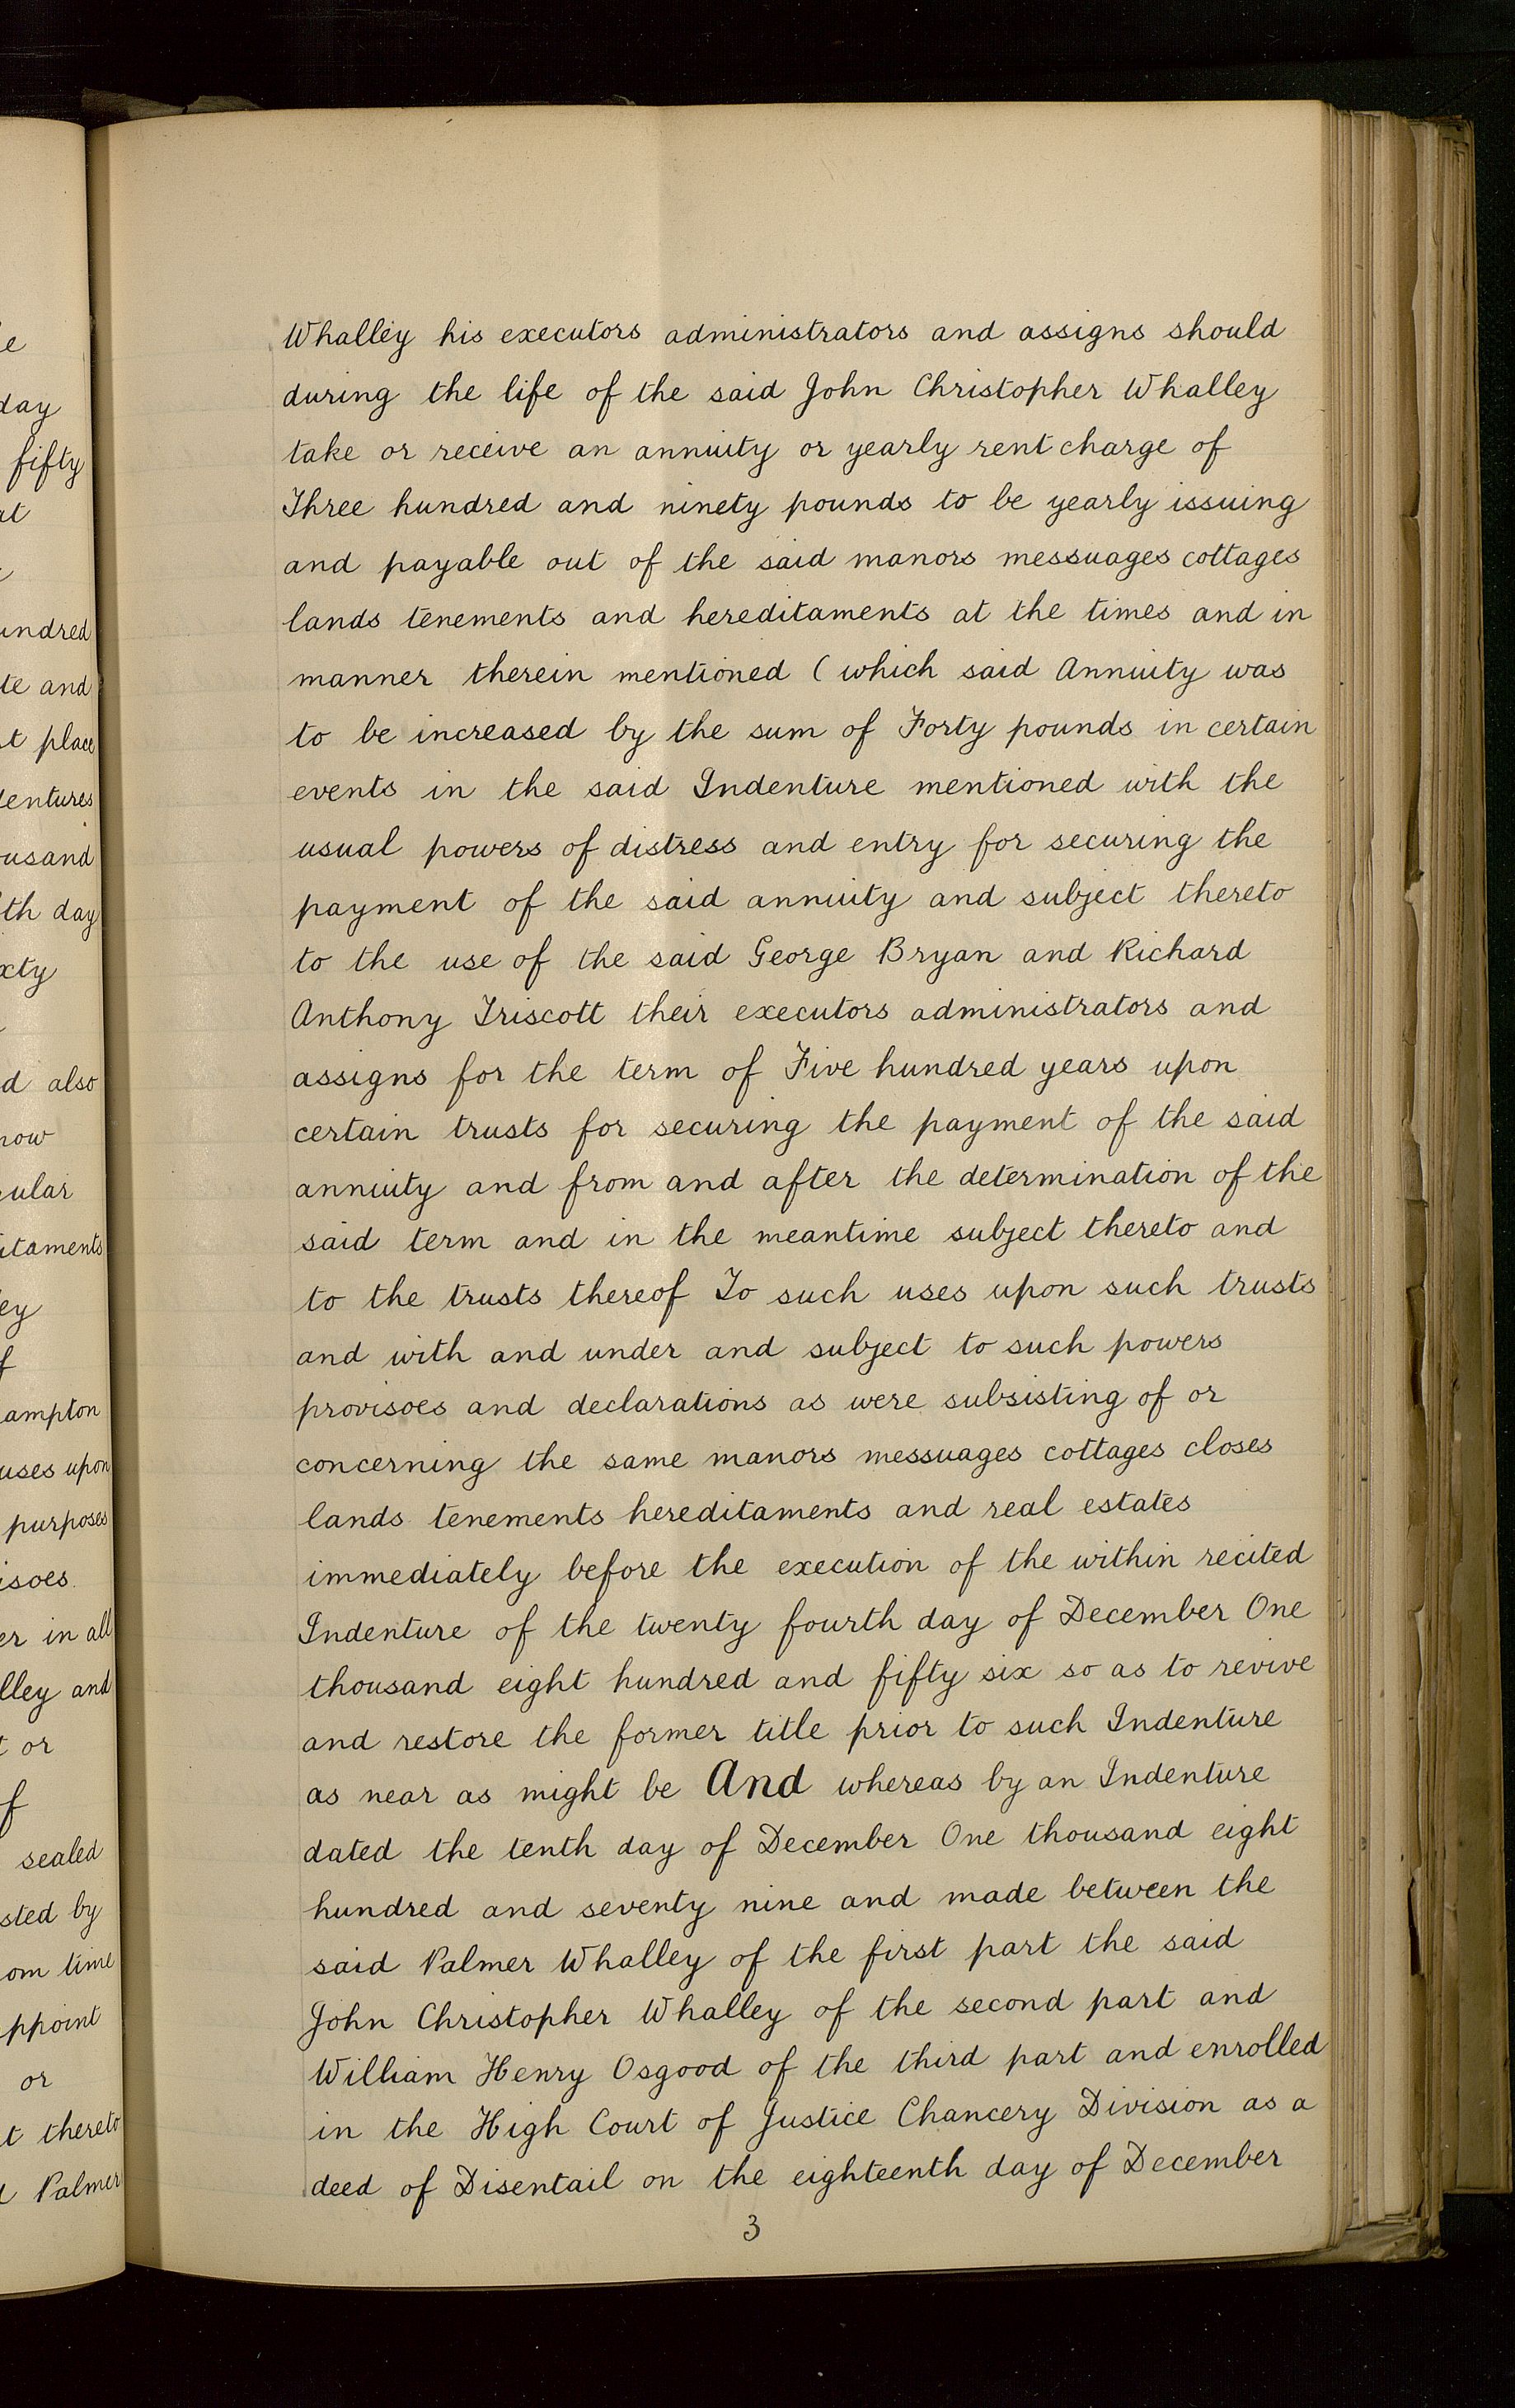 le
day
fifty
at
undred
te and
st place
dentures
ousand
lth day
xty
d also
now
gular
itaments
ley
f
hampton
uses upon
purposes
isoes
er in all
lley and
t or
f
sealed
sted by
om time
ppoint
or
t thereto
d Palmer
Whalley his executors administrators and assigns should
during the life of the said John Christopher Whalley
take or receive an annuity or yearly rent charge of
Three hundred and ninety pounds to be yearly issuing
and payable out of the said manors messuages cottages
lands tenements and hereditaments at the times and in
manner therein mentioned (which said Annuity was
to be increased by the sum of Forty pounds in certain
events in the said Indenture mentioned with the
usual powers of distress and entry for securing the
payment of the said annuity and subject thereto
to the use of the said George Bryan and Richard
Anthony Triscott their executors administrators and
assigns for the term of Five hundred years upon
certain trusts for securing the payment of the said
annuity and from and after the determination of the
said term and in the meantime subject thereto and
to the trusts thereof To such uses upon such trusts
and with and under and subject to such powers
provisoes and declarations as were subsisting of or
concerning the same manors messuages cottages closes
lands tenements hereditaments and real estates
immediately before the execution of the within recited
Indenture of the twenty fourth day of December One
thousand eight hundred and fifty six so as to revive
and restore the former title prior to such Indenture
as near as might be And whereas by an Indenture
dated the tenth day of December One thousand eight
hundred and seventy nine and made between the
said Palmer Whalley of the first part the said
John Christopher Whalley of the second part and
William Henry Osgood of the third part and enrolled
in the High Court of Justice Chancery Division as a
deed of Disentail on the eighteenth day of December
3